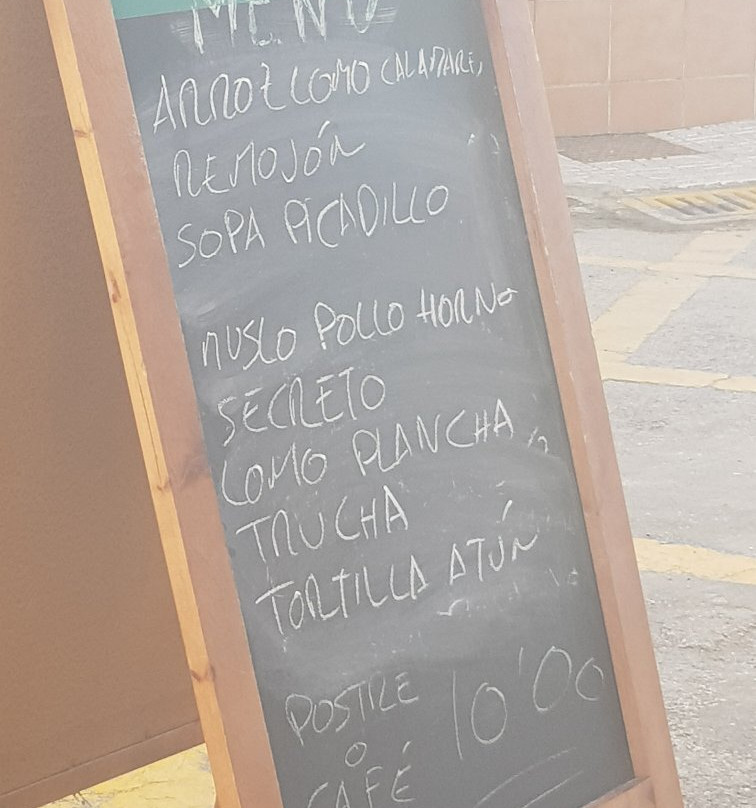 MENÚ
ARROZ LOMO CALAMARES
REMOJÓN
SOPA PICADILLO
MUSLO POLLO HORNO
SECRETO
LOMO PLANCHA
TRUCHA
TORTILLA ATÚN
POSTRE 10'00
O
CAFÉ